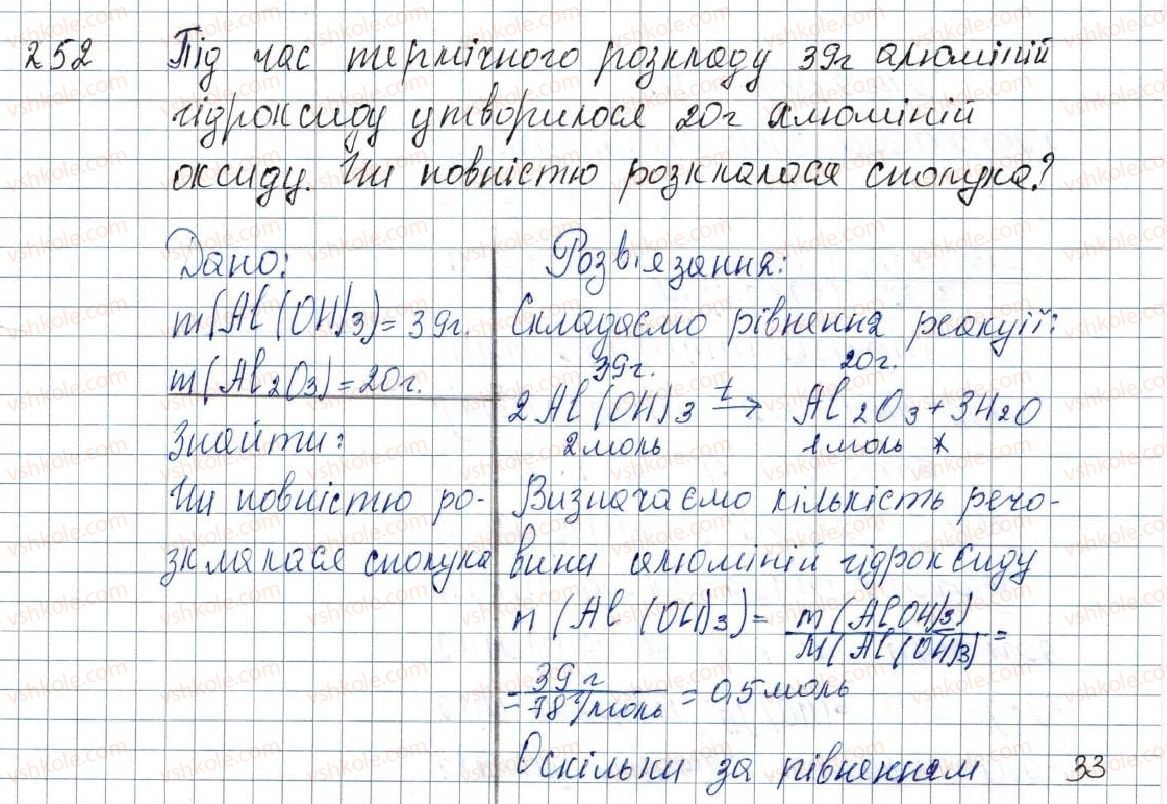 252 Під час термічного розкладу 39г алюміній
гідроксиду утворилося 20г алюміній
оксиду. Чи повністю розклалася сполука?
Дано:
m(Al(OH)3)=39г.
m(Al2O3)=20г.
Знайти:
Чи повністю ро-
зклалася сполука
Розв'язання:
Складаємо рівнення реакції:
39г. 20г.
2Al(OH)3 t→ Al2O3+3H2O
2моль 1моль
Визначаємо кількість речо-
вини алюміній гідроксиду
n(Al(OH)3)= m(AlOH)3) / M(Al(OH)3) =
= 39г / 78г/моль = 0,5моль
Оскільки за рівненням
33